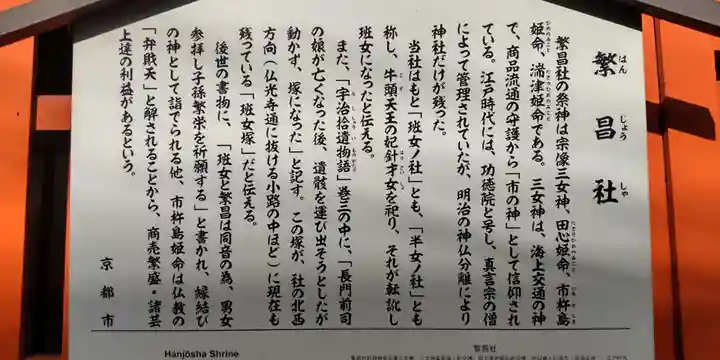 繁昌社
はんじょうしゃ
繁昌社の祭神は宗像三女神、田心姫命、市杵島
姫命、湍津姫命である。三女神は、海上交通の神
で、商品流通の守護から「市の神」として信仰され
ている。江戸時代には、功徳院と号し、真言宗の僧
によって管理されていたが、明治の神仏分離により
神社だけが残った。
当社はもと「班女ノ社」とも、「半女ノ社」とも
称し、牛頭天王の妃針才女を祀り、それが転訛し
班女になったと伝える。
また、「宇治拾遺物語」巻三の中に、「長門前司
の娘が亡くなった後、遺骸を運び出そうとしたが
動かず、塚になった」と記す。この塚が、社の北西
方向(仏光寺通に抜ける小路の中ほど)に現在も
残っている「班女塚」だと伝える。
後世の書物に、「班女と繁昌は同音の為、男女
参拝し子孫繁栄を祈願する」と書かれ、縁結び
の神として詣でられる他、市杵島姫命は仏教の
「弁財天」と解されることから、商売繁盛・諸芸
上達の利益があるという。
京都市
Hanjōsha Shrine
繁昌社